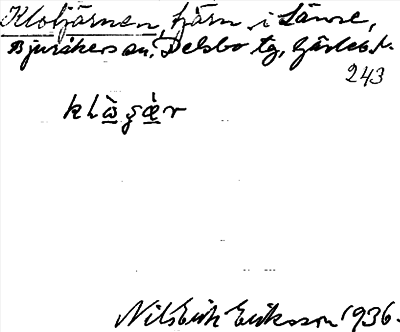 Klotjärnen, tjärn i Länne,
Bjuråkers sn, Delsbo tg, Gävleb. l.
243
klὰ̱ʂæ̱̀r
Nils Erik Eriksson 1936.